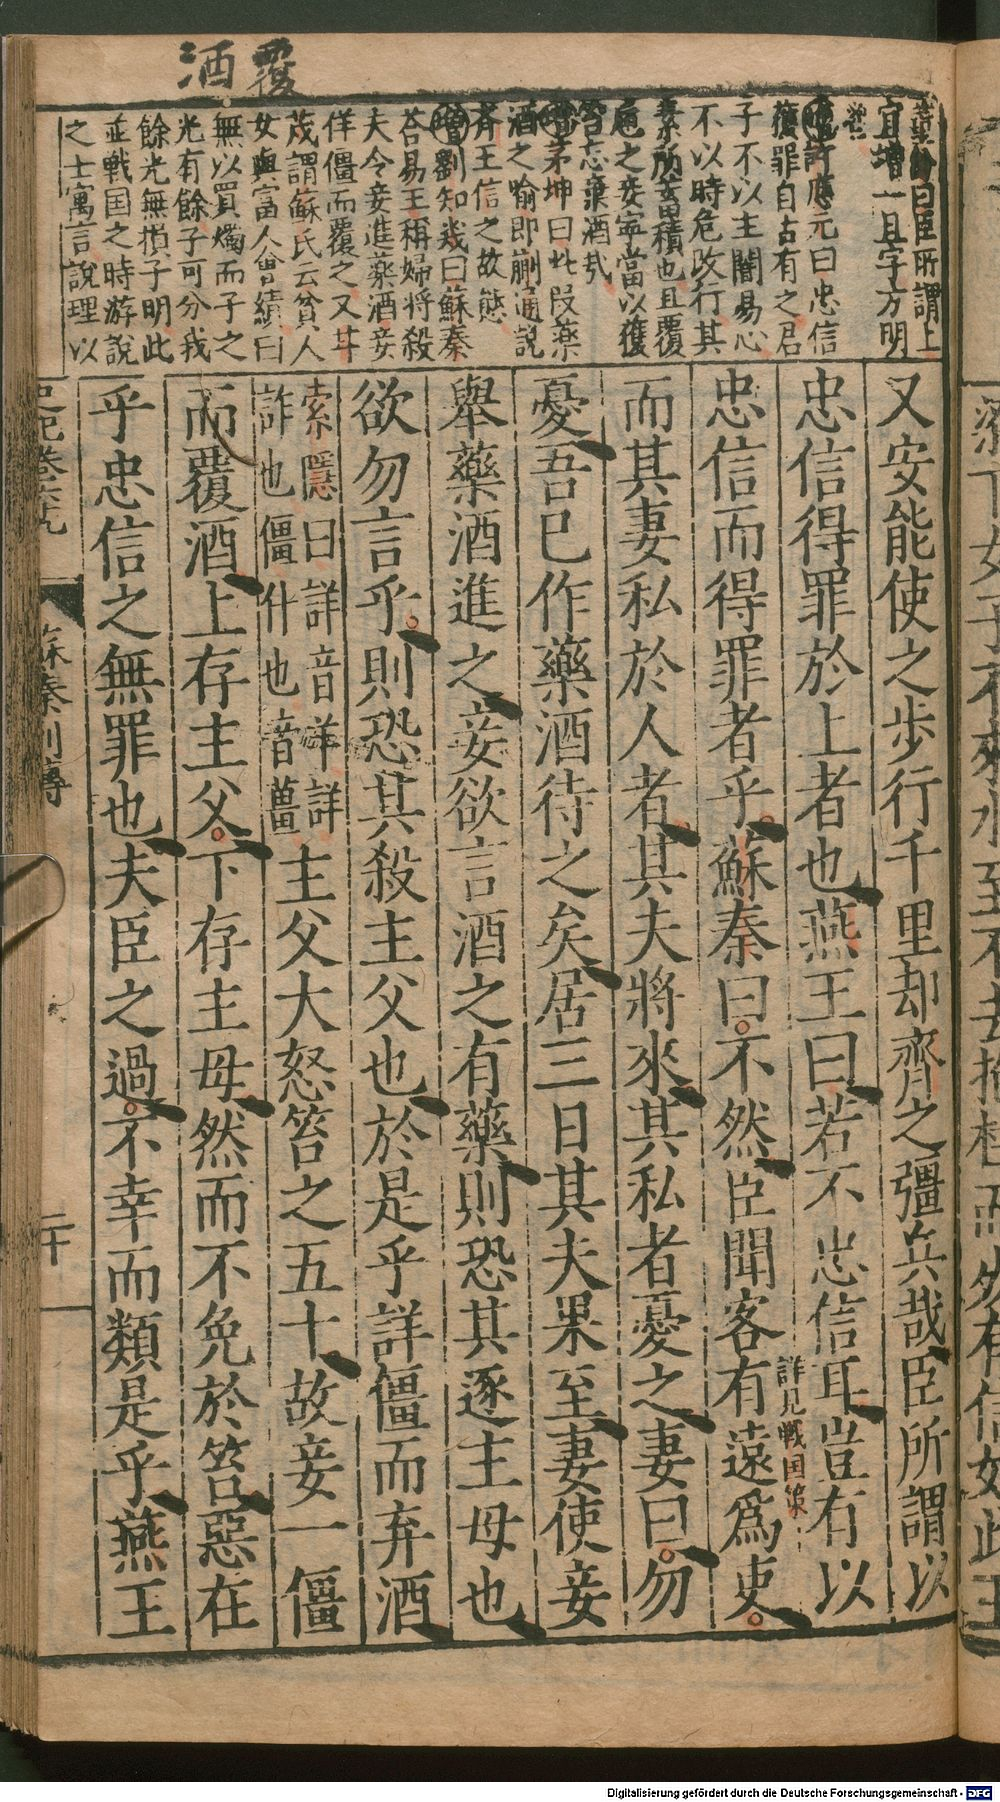 覆酒
董份曰臣所謂上
宜增一且字方明
許應元曰忠信
獲罪自古有之君
子不以主闇易心
不以時危改行其
素所蓄積也且覆
巵之妾寧當以獲
笞忘棄酒哉
增茅坤曰此段藥
酒之喻即蒯通說
齊王信之故態
增劉知幾曰蘇秦
荅易王稱婦將殺
夫令妾進藥酒妾
佯僵而覆之又甘
茂謂蘇氏云貧人
女與富人會績曰
無以買燭而子之
光有餘子可分我
餘光無損子明此
並戰国之時游說
之士寓言說理以
又安能使之步行千里却齊之彊兵哉臣所謂以
忠信得罪於上者也燕王曰若不忠信耳豈有以
詳見戦国策
忠信而得罪者乎蘇秦曰不然臣聞客有遠爲吏
而其妻私於人者其夫將來其私者憂之妻曰勿
憂吾已作藥酒待之矣居三日其夫果至妻使妾
舉藥酒進之妾欲言酒之有藥則恐其逐主母也
欲勿言乎則恐其殺主父也於是乎詳僵而弃酒
索隱曰詳音羊詳
詐也僵仆也音薑
主父大怒笞之五十故妾一僵
而覆酒上存主父下存主母然而不免於笞惡在
乎忠信之無罪也夫臣之過不幸而類是乎燕王
史記卷六十九
蘇秦列傳
二十
Digitalisierung gefördert durch die Deutsche Forschungsgemeinschaft - DFG